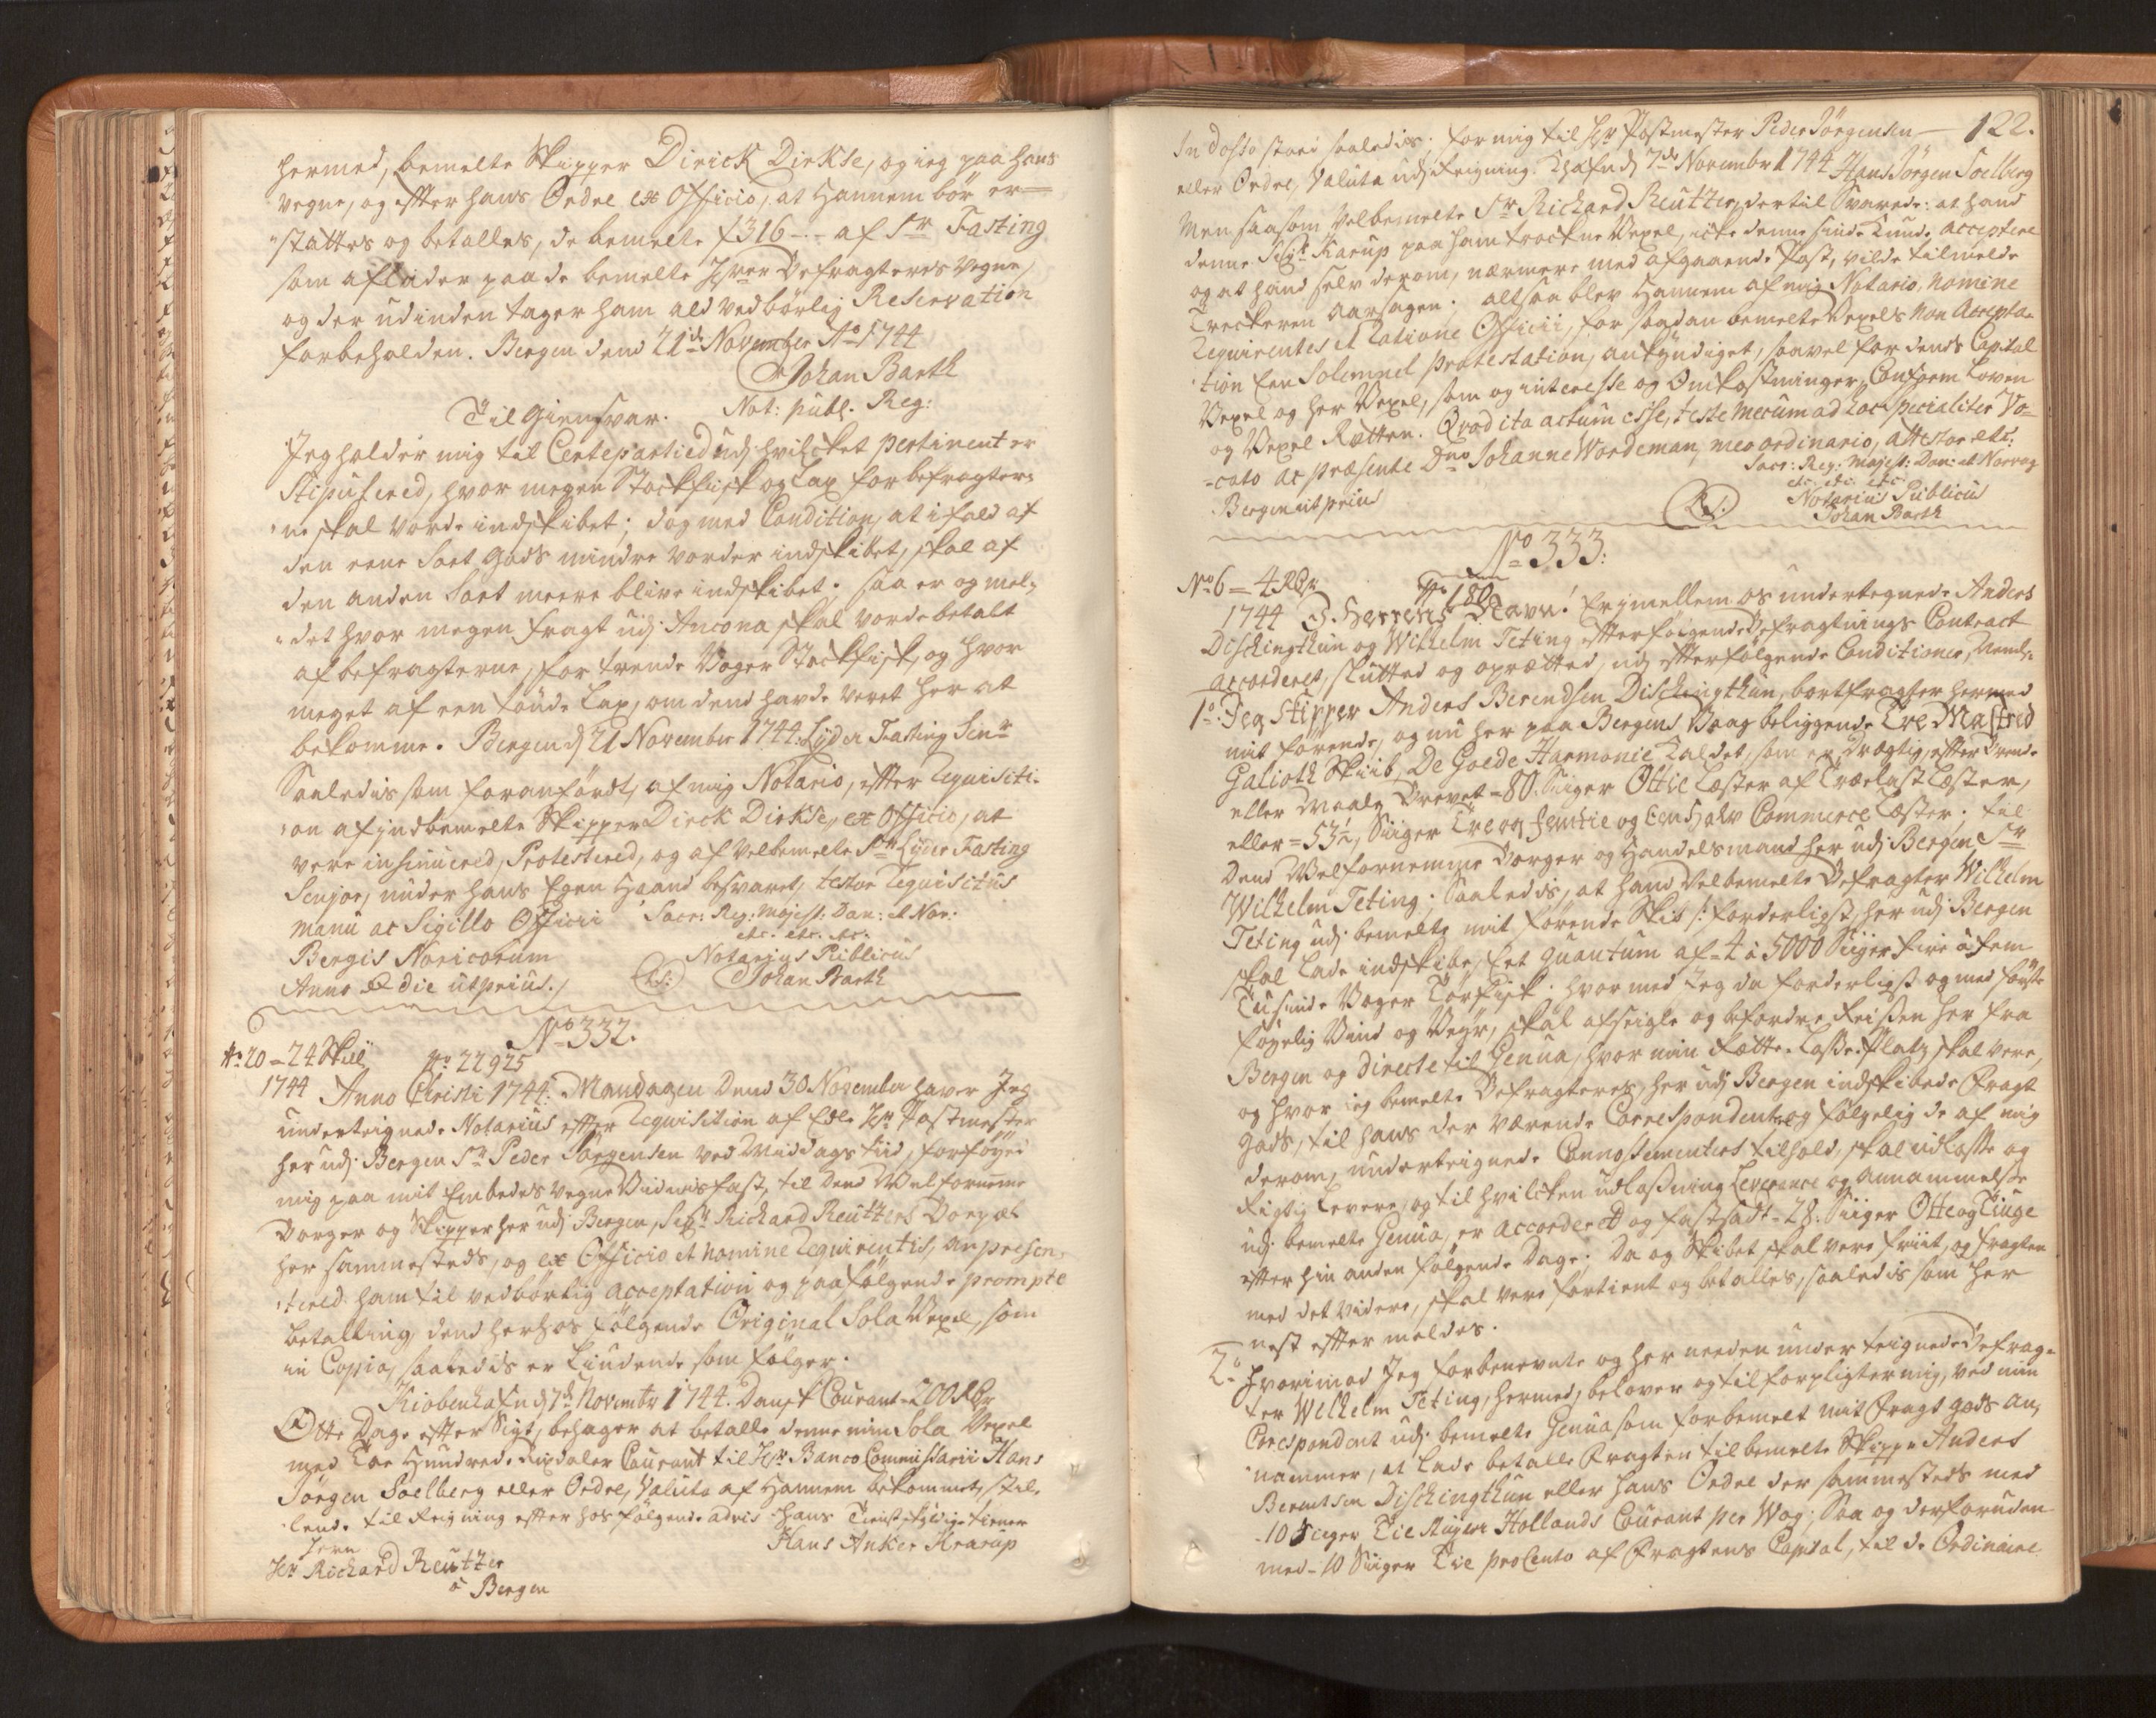 hermed, bemelte Skipper Dirick Dirkse, og ieg paa hans
vegne, og efter hans Ordre ex Officio, at Hannem bör er=
"stattes og betalles, de bemelte f316 -.- af Sr Fasting
som aflader paa de bemelte Hrer Befragteres Vegne,
og der udinden tager ham ald vedbörlig Reservation
forbeholden. Bergen dend 21de November Ao 1744
Johan Barth
Not: publ. Reg:
Til Giensvar.
Jeg holder mig til Certepartied udj hvilcket pertinent er
Stipulered, hvor megen Stockfisk og Lax for befragter=
ne skal vorde indskibet; dog med Condition, at ifald af
den eene Sort gods mindre vorder indskibet, skal af
den anden Sort meere blive indskibet; saa er og mel=
"det hvor megen fragt udj Ancona skal vorde betalt
af befragterne, for trende Voger Stockfisk, og hvor
meget af een tönde Lax, om dend havde veret her at
bekomme. Bergen d 21 November 1744: Lyder Fasting Senr
Saaledis som foranfördt, af mig Notario, efter Requisiti-
"on af jndbemelte Skipper Dirck Dirkse, ex officio, at
vere insinuered, Protestered, og af Velbemelte Sr Lyder Fasting
Senjor, under hans Egen Haand besvaret, testor Requisitus
manu ac Sigillo Officii Sacr: Reg: Majest: Dan: et Nor:
etc. etc. etc.
Bergis Noricorum Notarius Publicus
Anno & die ut prius. (LS:) Johan Barth
No 332.
No 20 = 24 Skill No 22925
1744 Anno Christi 1744. Mandagen Dend 30 November haver Jeg
underteignede Notarius efter Requisition af Edle Hr Postmester
her udj Bergen Sr Peder Jörgensen ved Middags tiid, forföyed
mig paa mit Embedes vegne Vidnisfast, til Dend Velfornemme
Borger og Skipper her udj Bergen, Signr Richard Reutzers Bopæl
her sammesteds, og ex Officio et nomine Requirentis, anpresen=
"tered ham til vedbörlig acceptation og paafölgende prompte
betalling, dend herhos fölgende Original Sola Vexel, som
in Copia, saaledis er Liudende som fölger.
Kiobenhafn d 7de Novembr 1744. Dansk Courant = 200 Rdr
Otte Dage efter Sigt, behager at betalle denne min Sola Vexel
med Toe Hundrede Rixdaler Courant til Hr Banco Commissarii Hans
Jörgen Soelberg eller Ordre, Valuta af Hannem bekommet, stil-
"lende til Reigning efter hos fölgende advis hans Tienstskyldige tiener
Herre Hans Ancker Krarup
Hr Richard Reutzer
a Bergen
122.
In dosso stoed saaledis; for mig til Hr Postmester Peder Jörgensen
eller Ordre, Valuta udj Reigning. Khafn d 7de Novembr 1744 Hans Jörgen Soelberg
Men saasom Velbemelte Sr Richard Reutzer, dertil Svarede: at hand
denne Signr Karup paa ham trockne Vexel, icke denne sinde kunde acceptere
og at hand selv derom, nærmere med afgaaende Post, vilde tilmelde
Treckeren aarsagen; altsaa blev Hannem af mig Notario, nomine
Requirentes et Ratione Officii, for saadan bemelte Vexels Non Accepta=
"tion Een Solemnel protestation, ankyndiget, saavel for dends Capital
Vexel og her Vexel, som og interesse og Omkostninger, Conform Loven
og Vexel Retten. Qvod ita actum esse, teste mecum ad hoc specialiter Vo=
=cato ac præsente Dno Johanne Wordeman, meo ordinario, attestor etc:
Bergen ut prius Sacr: Reg: Majest: Dan: et Norveg
etc. etc. etc.
(LS:) Notarius Publicus
Johan Barth
No 333.
No 6 = 4 Rdr No 180
1744 I Herrens Navn! Er imellem os undertegnede Anders
Dischingthun og Wilhelm Teting efterfölgende Befragtnings Contract
accorderet, slutted og oprætted, udj efterfölgende Conditioner, Nemlig
1o: Jeg Skipper Anders Berendsen Dischingthun, bortfragter hermed
mit förende, og nu her paa Bergens Vaag beliggende Tre Mastred
Galioth Skiib, De Goede Harmonie Kaldet, som er Drægtig, efter Brende
eller Maale Brevet = 80. Siiger Ottie Læster af Trælast Læster,
eller = 53½, Siiger Tre og femtie og Een halv Commerce Læster; til
Dend Velfornemme Borger og Handelsmand her udj Bergen Sr
Wilhelm Teting; Saaledis, at hand Velbemelte Befragter Wilhelm
Teting udj bemelte mit förende Skib /: forderligst, her udj Bergen
skal lade indskibe, Eet quantum af = 4 á 5000 Siiger fire á fem
Tusinde Voger Torfisk. Hvor med Jeg da forderligst og med förste
föyelig Vind og Veyr, skal afseigle og befordre Reisen her fra
Bergen og directe til Genua, hvor min Rette Losse Platz skal vere,
og hvor ieg bemelte Befragteres, her udj Bergen indskibede Fragt
gods, til hans der værende Correspondent, og fölgelig de af mig
derom, underteignede Connossementers tilhold, skal udlosse og
Rigtig Levere; og til hvilcken udlossning Leverance og annammelsse
udj bemelte Genua, er accorderet og fastsadt = 28. Siiger Otte og Tiuge
efter hin anden fölgende Dage; Da og Skibet skal vere friit, og fragten
med det videre, skal vere fortient og betalles, saaledis som her
nest efter meldes.
2o Hvorimod Jeg forbenevnte og her needen under teignede Befrag=
ter Wilhelm Teting, hermed, belover og tilforpligter mig, ved min
Corespondent udj bemelte Genua som forbemelt mit Fragt gods an=
"nammer, at lade betalle Fragten til bemelte Skipper Anders
Berentsen Dischingthun eller hans Ordre der sammesteds med
- 10 Siiger Tie Stuyver Hollands Courant per Wog; Saa og derforuden
med - 10 Siiger Tie pro Cento af Fragtens Capital, til de Ordinaire